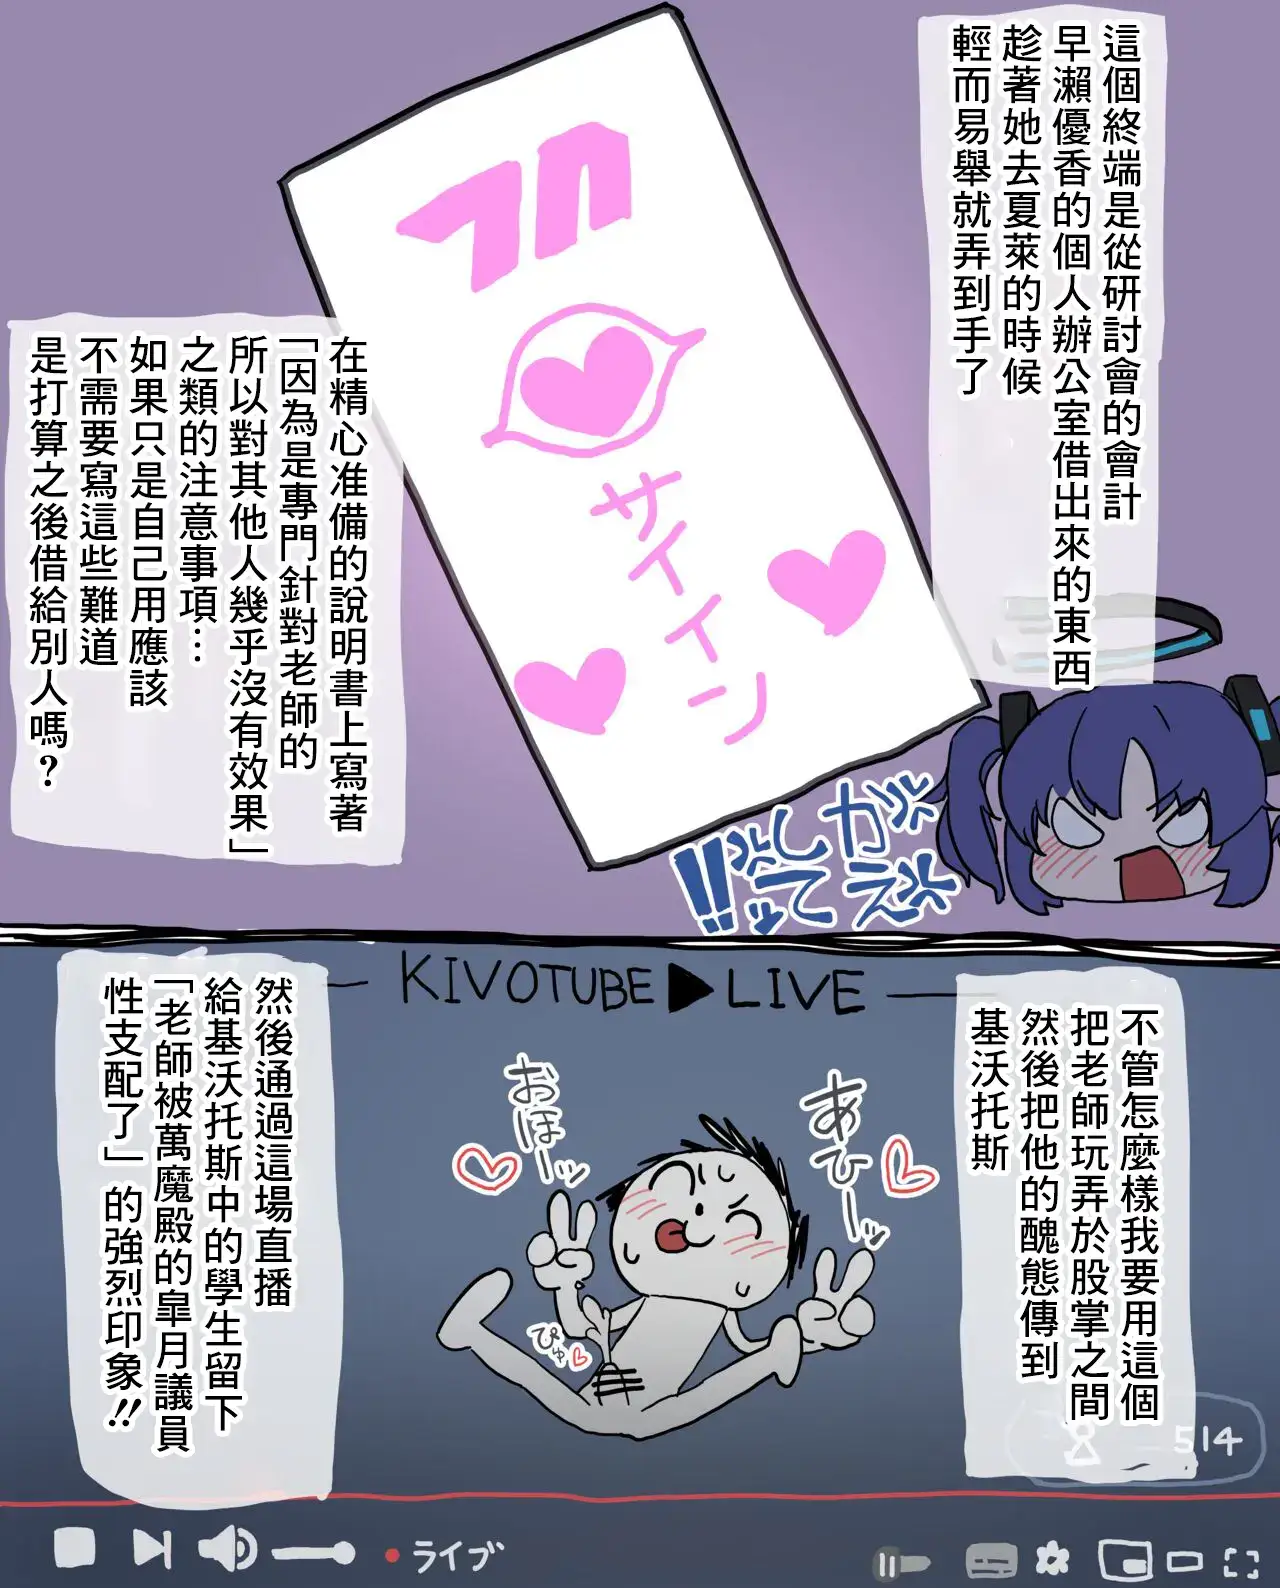 這個終端是從研討會的會計
早瀨優香的個人辦公室借出來的東西
趁著她去夏萊的時候
輕而易舉就弄到手了
サイイン
在精心准備的說明書上寫著
「因為是專門針對老師的
所以對其他人幾乎沒有效果」
之類的注意事項…
如果只是自己用應該
不需要寫這些難道
是打算之後借給別人嗎?
かえ
してッ
!!
KIVOTUBE▶LIVE
不管怎麼樣我要用這個
把老師玩弄於股掌之間
然後把他的醜態傳到
基沃托斯
あひーッ
おほーッ
ぴゅ
然後通過這場直播
給基沃托斯中的學生留下
「老師被萬魔殿的皐月議員
性支配了」的強烈印象!!
514
ライブ